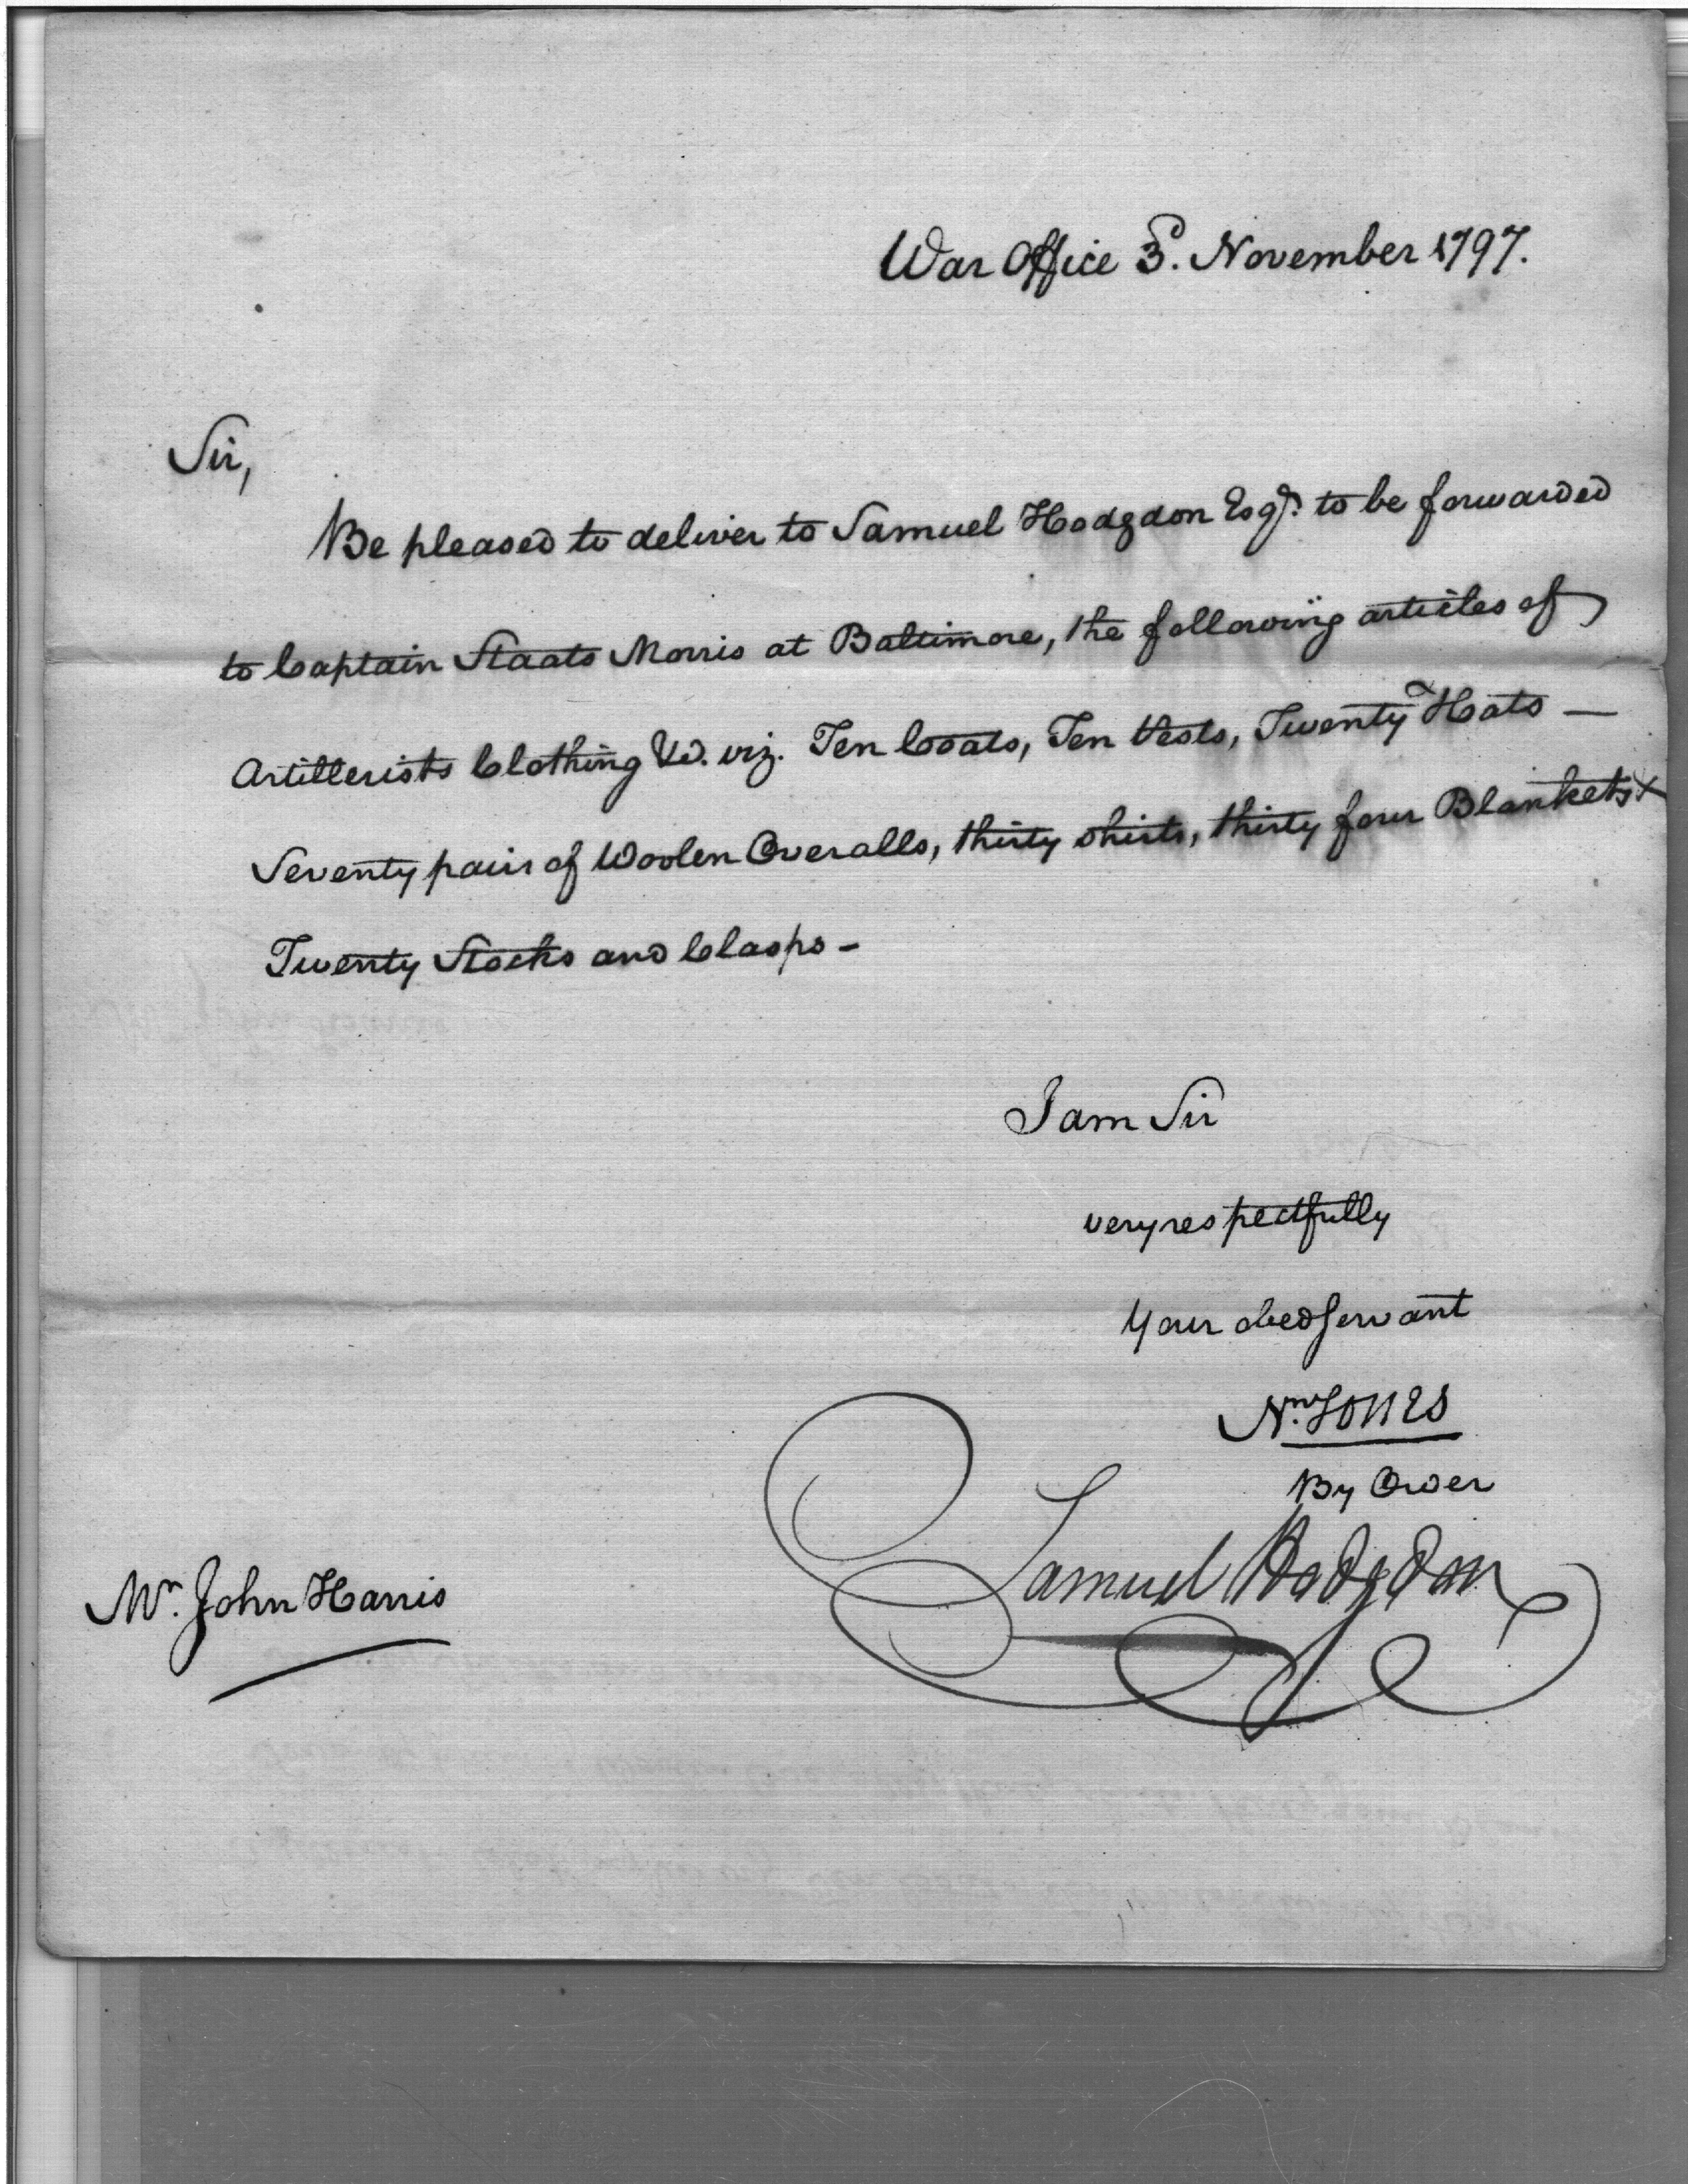 War Office 3d. November 1797.
Sir,
Be pleased to deliver to Samuel Hodgdon Esqr. to be forwarded
to Captain Staats Morris at Baltimore, the following articles of
Artillerists Clothing &c. viz. Ten Coats, Ten Vests, Twenty Hats —
Seventy pair of Woolen Overalls, thirty shirts, thirty four Blankets &
Twenty Stocks and Clasps -
I am Sir
very respectfully
Your obed servant
Nw. Jones
By Order
Samuel Hodgdon
Mr. John Harris